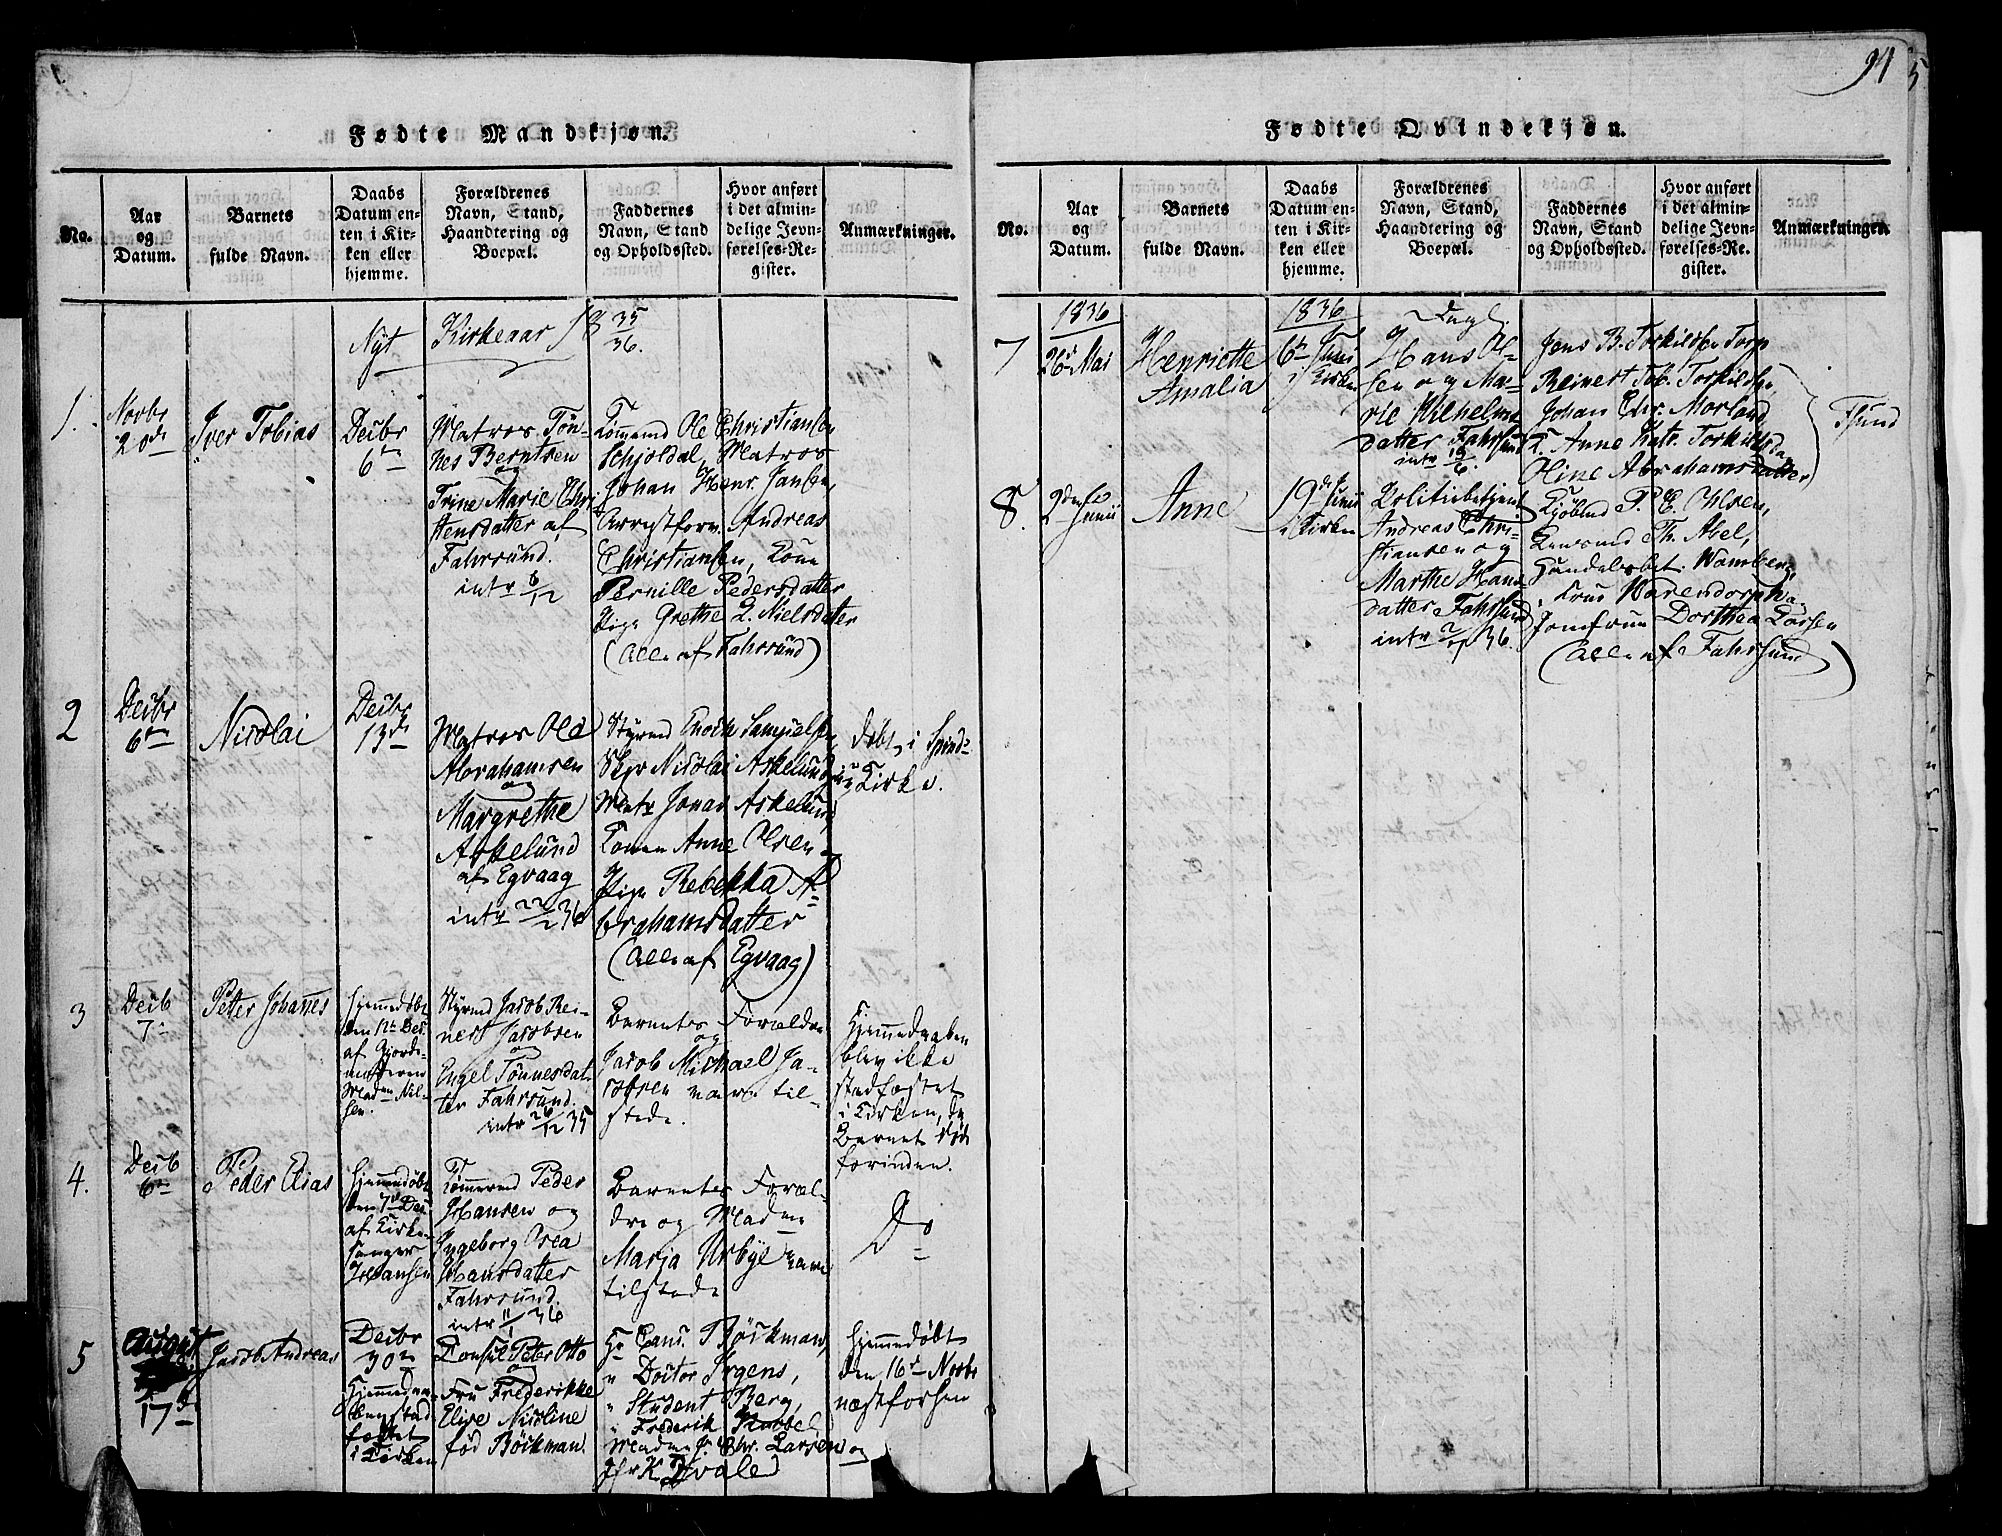 94
5
Fødte Mandkjøn.
No.
Aar
og
Datum.
Barnets
fulde Navn.
Daabs
Datum en-
ten i Kir-
ken eller
hjemme.
Forældrenes
Navn, Stand,
Haandtering og
Boepæl.
Faddernes
Navn, Stand
og Opholdssted.
Hvor anført
i det almin-
delige Jevn-
førelses-Re-
gister.
Anmærkninger.
Nyt Kirkeaar 18 35/36.
1.
Novbr
20de
Iver Tobias
Decbr
6te
Matros Tön-
nes Berntsen
og
Trine Marie Chri-
stensdatter af
Fahrsund.
intr 6/12
Tömmermd Ole Christiansen
Schjoldal, Matros
Johan Henr. Jansen,
Arrestforv. Andreas
Christiansen, Kone
Pernille Pedersdatter
Pige Grethe L. Nielsdatter
(Alle af Fahrsund)
2
Decbr
6te
Nicolai
Decbr
13de
Matros Ole
Abrahamsen
og
Margrethe
Askelund
af Egvaag
intr 22/2 36
Styrmd Enoch Samuelsen,
Skpr Nicolai Askelund,
Matr Jonas Askelund,
Konen Anne Olsen og
Pige Rebekka A-
brahamsdatter
(Alle af Egvaag)
Döbt i Spind-
Kirke.
3
Decb
7de
Petter Johannes
Hjemmedöbt
den 11te Dec.
af Gjorde-
moderen
Madm Nil-
sen.
Styrmd Jacob Rei-
nert Jacobsen
og
Engel Tönnesdat-
ter Fahrsund.
intr 26/12 35
Barnets Forældre
og
Jacob Michael Ja-
cobsen vare til-
stede.
Hjemmedaaben
blev ikke
stadfæstet
i Kirken, da
Barnet döde
forinden.
4.
Decb
6te
Peder Elias
Hjemmedöbt
den 7de Dec
af Kirke-
sanger
Johansen
Tömmermd Peder
Hansen og
Ingeborg Osea
Hansdatter
Fahrsund.
intr 11/1 36
Barnets Foræl-
dre og Madme
Maria Urbye vare
tilstede
Do
5
August
17de
Jacob Andreas
Decbr
30te
Hjemmedaa-
ben stad
fæstet
i Kirken
Consul Peter Otto
og
Fru Frederikke
Elise Nicoline
fød Böckman.
Hr Cand. Böckman,
" Doctor Irgens,
" Student Berg,
" Frederik
Madme J. Chr. Larsen og
Jfr K. Dvaled
Hjemmedöbt
den 16de Novbr
næstforhen
Fødte Qvindekjøn.
No.
Aar
og
Datum.
Barnets
fulde Navn.
Daabs
Datum en-
ten i Kir-
ken eller
hjemme.
Forældrenes
Navn, Stand,
Haandtering og
Boepæl.
Faddernes
Navn, Stand
og Opholdssted.
Hvor anført
i det almin-
delige Jevn-
førelses-Re-
gister.
Anmærkninger.
7
1836
26de Mai
Henriette
Amalia
1836
6te Juni
i Kirken
Hans Ol-
sen og Ma-
rie Vilhelms
datter Fahrsund
intr 19/6.
Jens B. Torkildsen Torp
Reinert Tob. Torkildsen,
Johan Chr. Morland
K. Anne Katr. Torkildsda.
Oline Abrahamsdatter
Fsund
8.
2den
Junii
Anne
19de Junii
i Kirken
Politiebetjent
Andreas Chri-
stiansen og
Marthe Hans
datter Fahrsund
intr 36.
Kjöbmd P. E. Olsen,
Th. Abel,
Handelsbet. Wamberg,
Frue Warendorph
Jomfrue Dorthea Larsen
(Alle af Fahrsund)